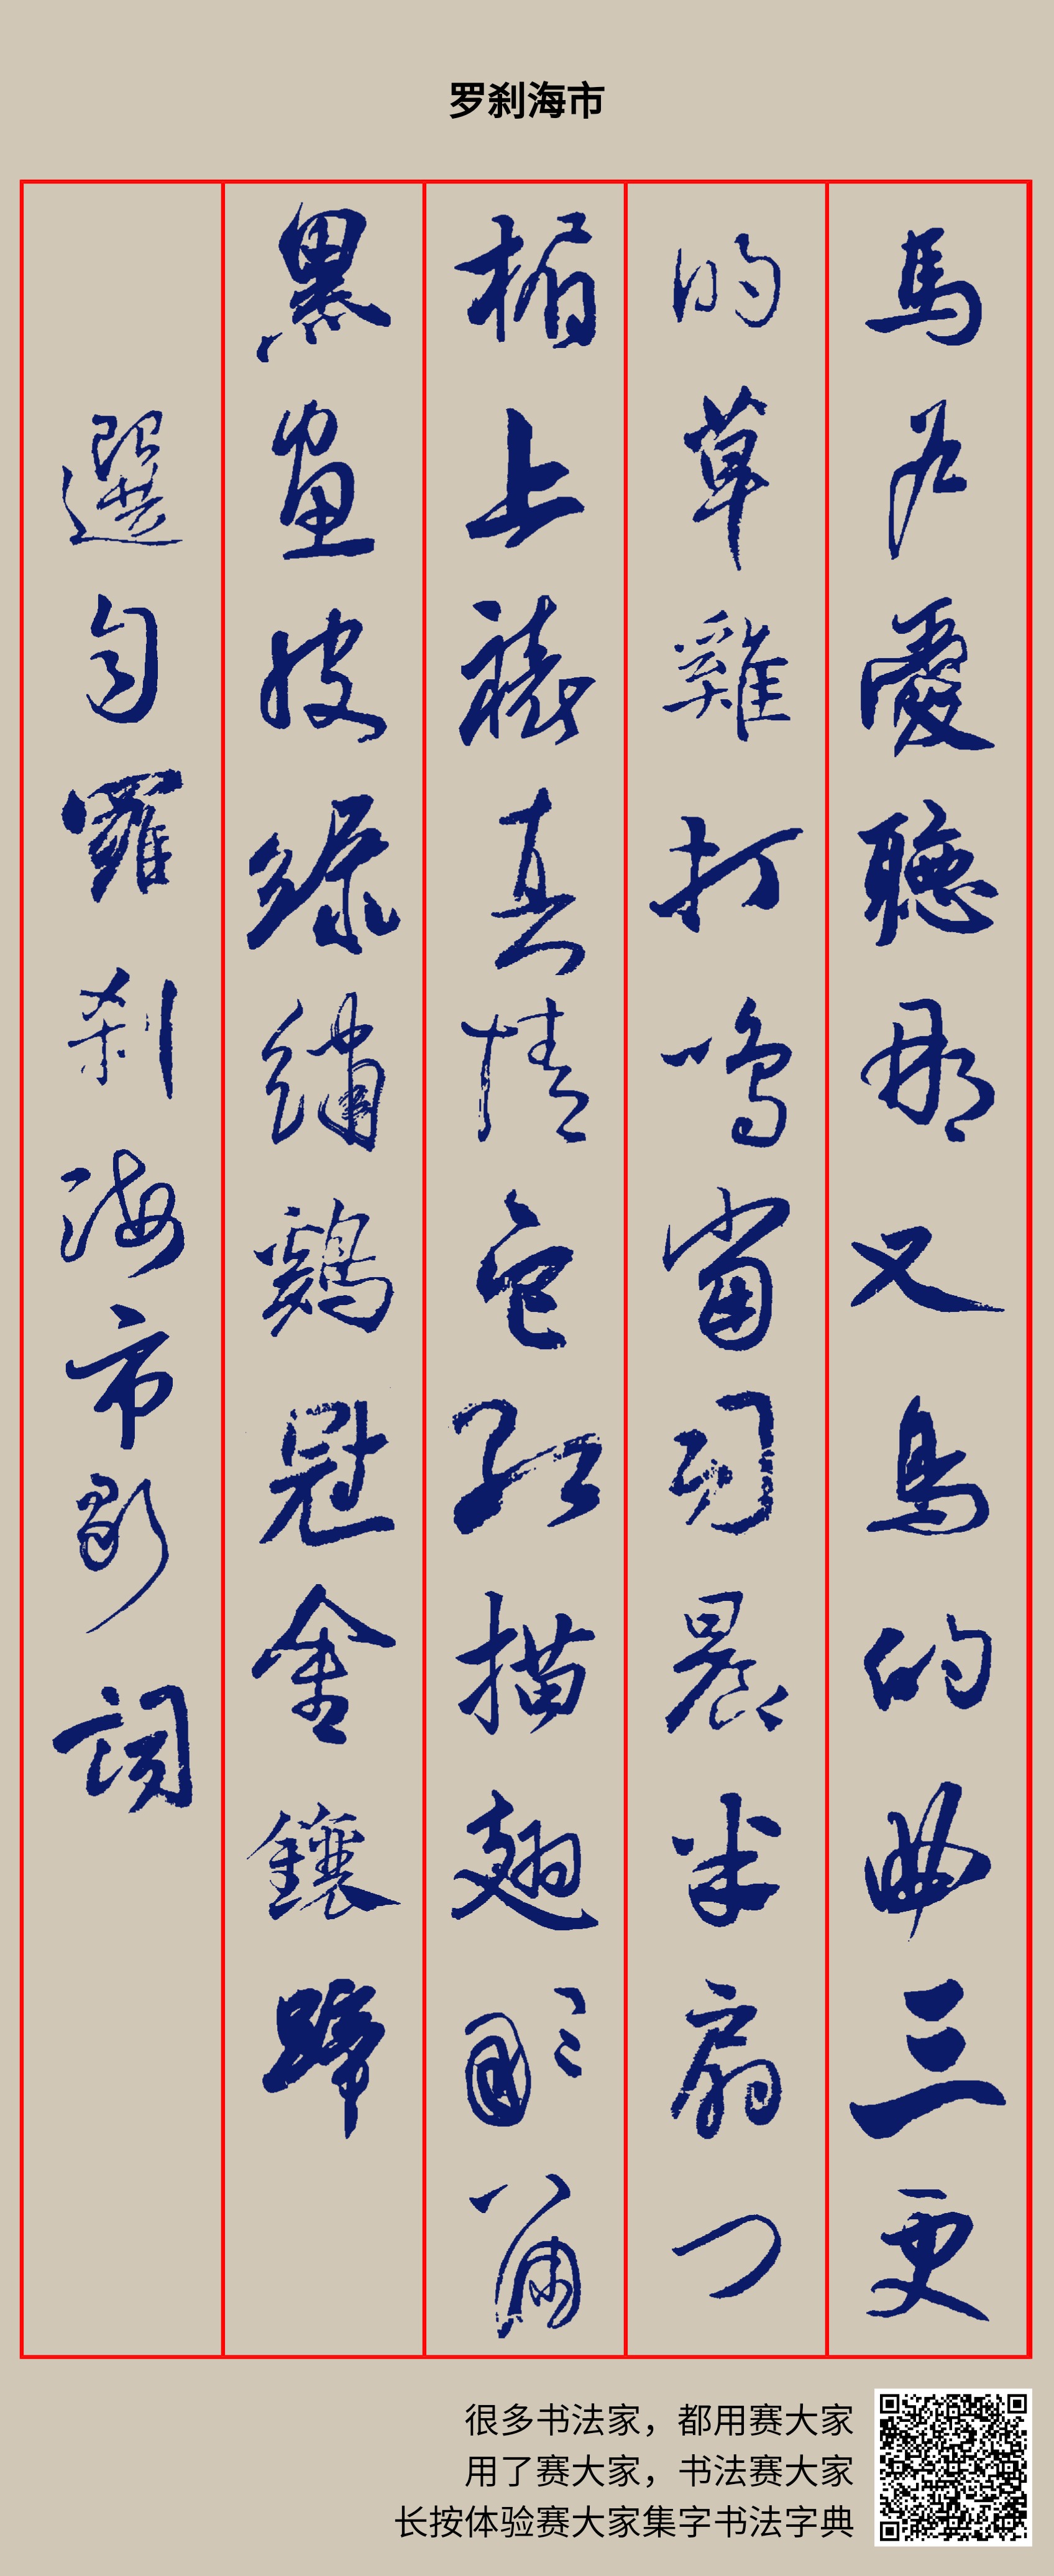 罗刹海市
馬户愛聽那又鳥的曲三更
的草雞打鳴當司晨半扇门
楣上裱真情它紅描翅
黑畫皮綠繡鷄冠金鑲蹄
選句羅刹海市歌詞
很多书法家，都用赛大家
用了赛大家，书法赛大家
长按体验赛大家集字书法字典